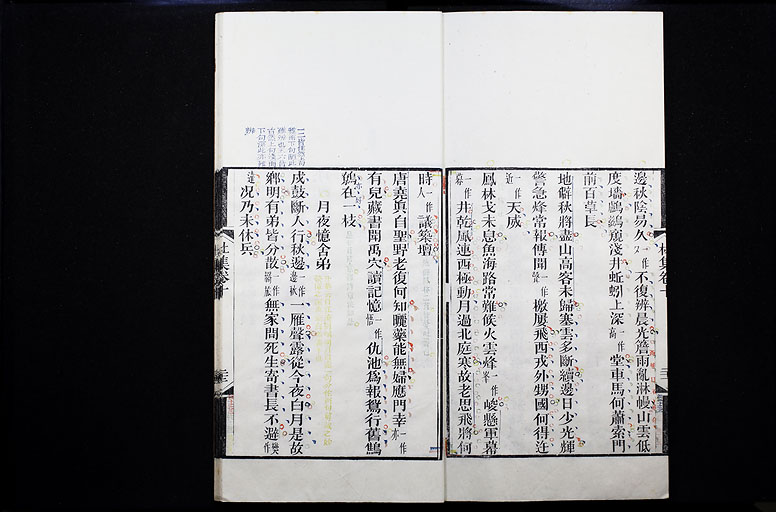 邊秋陰易久一作不復辨晨光簷雨亂淋幔山雲低
度墻鸕鶿窺淺井蚯蚓上深一作高堂車馬何蕭索門
前百草長
地僻秋將盡山高客未歸塞雲多斷續邊日少光輝
警急烽常報傳聞一作檄屢飛西戎外甥國何得迕
一作近天威
鳳林戈未息魚海路常難候火雲烽一作峯峻懸軍幕
一作井乾風連西極動月過北庭寒故老思飛將何
時一作人議築壇
唐堯眞自聖野老復何知曬藥能無婦應門幸一作亦
有兒藏書聞禹穴讀記憶一作悟仇池爲報鴛行舊鷦
鷯在一枝
月夜憶舍弟
戍鼓斷人行秋邊一作邊秋一雁聲露從今夜白月是故
鄉明有弟皆分散一作無家問死生寄書長不避一作
達况乃未休兵
杜集卷十